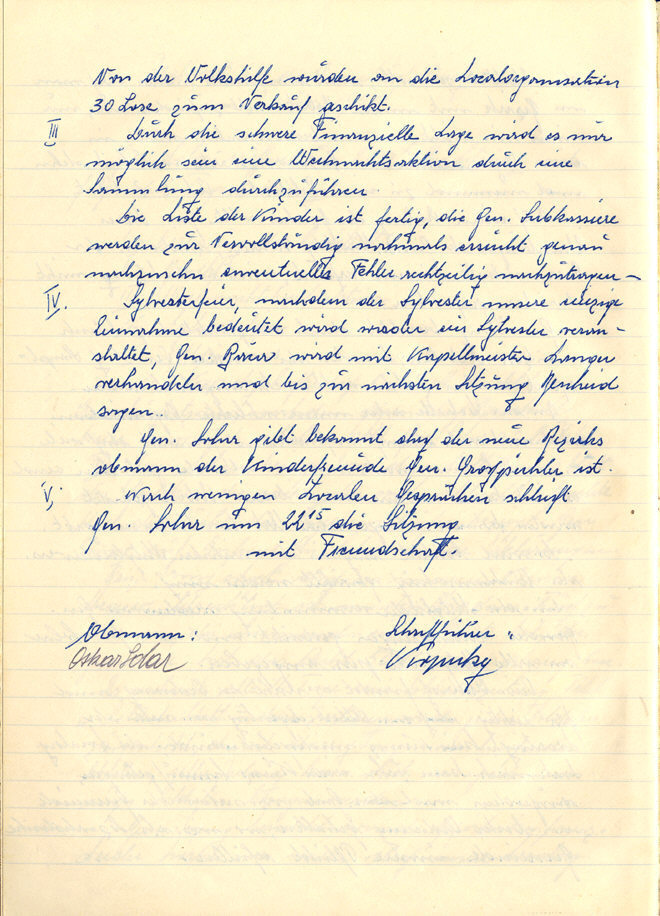 Von der Volkshilfe wurden an die Localorganisation
30 Lose zum Verkauf geschikt.
III Durch die schwere Finanzielle Lage wird es nur
möglich sein eine Weihnachtsaktion durch eine
Sammlung durchzuführen.
Die Liste der Kinder ist fertig, die Gen. Subkassiere
werden zur Vervollständig nochmals ersucht genau
nachzusehn eventuelle Fehler rechtzeitig nachzutragen –
IV. Sylvesterfeier, nachdem der Sylvester unsere einzige
Einnahme bedeutet wird wieder ein Sylvester veran-
staltet, Gen. wird mit Kapellmeister Langer
verhandeln und bis zur nächsten Sitzung Bescheid
sagen.
Gen. Solar gibt bekannt daß der neue Bezirks
obmann der Kinderfreunde Gen. ist.
V. Nach wenigen Localen Gesprächen schließt
Gen. Solar um 22 15 die Sitzung
mit Freundschaft.
Obmann: Schriftführer:
Oskar Solar